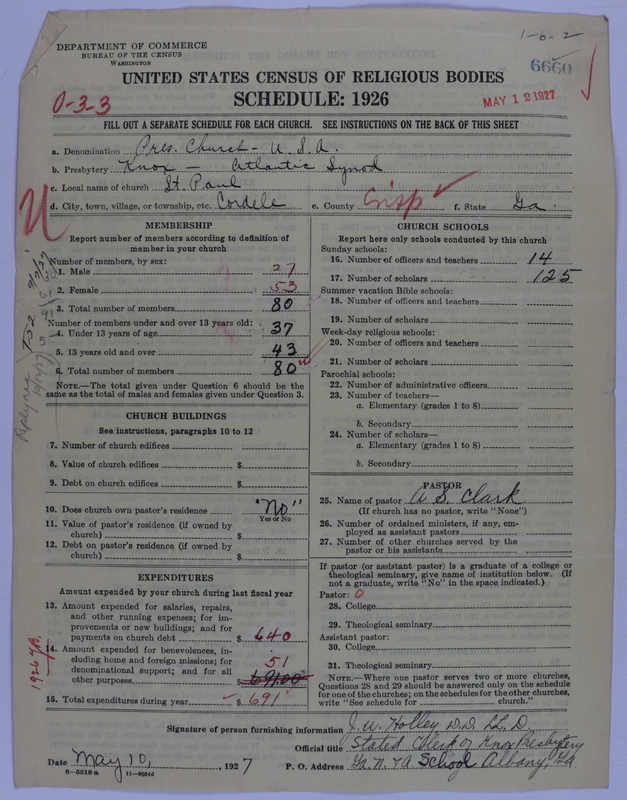 1-6-2
DEPARTMENT OF COMMERCE
BUREAU OF THE CENSUS
WASHINGTON
6660
UNITED STATES CENSUS OF RELIGIOUS BODIES
SCHEDULE: 1926
0-3-3
MAY 12 1927
FILL OUT A SEPARATE SCHEDULE FOR EACH CHURCH. SEE INSTRUCTIONS ON THE BACK OF THIS SHEET
a. Denomination Pres. Church - U.S.A.
b. Presbytery Knox - Atlantic Synod
c. Local name of church St. Paul
d. City, town, village, or township, etc. Cordele e. County Crisp f. State Ga.
MEMBERSHIP
Report number of members according to definition of member in your church
Number of members, by sex:
1. Male 27
2. Female 53
3. Total number of members 80
Number of members under and over 13 years old:
4. Under 13 years of age 37
5. 13 years old and over 43
6. Total number of members 80
NOTE.—The total given under Question 6 should be the same as the total of males and females given under Question 3.
CHURCH BUILDINGS
See instructions, paragraphs 10 to 12
7. Number of church edifices
8. Value of church edifices $
9. Debt on church edifices $
10. Does church own pastor's residence "No"
Yes or No
11. Value of pastor's residence (if owned by church) $
12. Debt on pastor's residence (if owned by church) $
EXPENDITURES
Amount expended by your church during last fiscal year
13. Amount expended for salaries, repairs, and other running expenses; for improvements or new buildings; and for payments on church debt $ 640
14. Amount expended for benevolences, including home and foreign missions; for denominational support; and for all other purposes 51 $ 691.00
15. Total expenditures during year $ 691
CHURCH SCHOOLS
Report here only schools conducted by this church
Sunday schools:
16. Number of officers and teachers 14
17. Number of scholars 125
Summer vacation Bible schools:
18. Number of officers and teachers
19. Number of scholars
Week-day religious schools:
20. Number of officers and teachers
21. Number of scholars
Parochial schools:
22. Number of administrative officers
23. Number of teachers—
a. Elementary (grades 1 to 8)
b. Secondary
24. Number of scholars—
a. Elementary (grades 1 to 8)
b. Secondary
PASTOR
25. Name of pastor A. S. Clark
(If church has no pastor, write "None")
26. Number of ordained ministers, if any, employed as assistant pastors
27. Number of other churches served by the pastor or his assistants
If pastor (or assistant pastor) is a graduate of a college or theological seminary, give name of institution below. (If not a graduate, write "No" in the space indicated.)
Pastor: 0
28. College
29. Theological seminary
Assistant pastor:
30. College
31. Theological seminary
NOTE.—Where one pastor serves two or more churches, Questions 28 and 29 should be answered only on the schedule for one of the churches; on the schedules for the other churches, write "See schedule for church."
Signature of person furnishing information J. W. Holley D.D. LL.D.
Official title Stated Clerk of Knox Presbytery
Date May 10, 1927 P. O. Address Ga. N. & A School Albany, Ga.
8-5518a 11-9054d